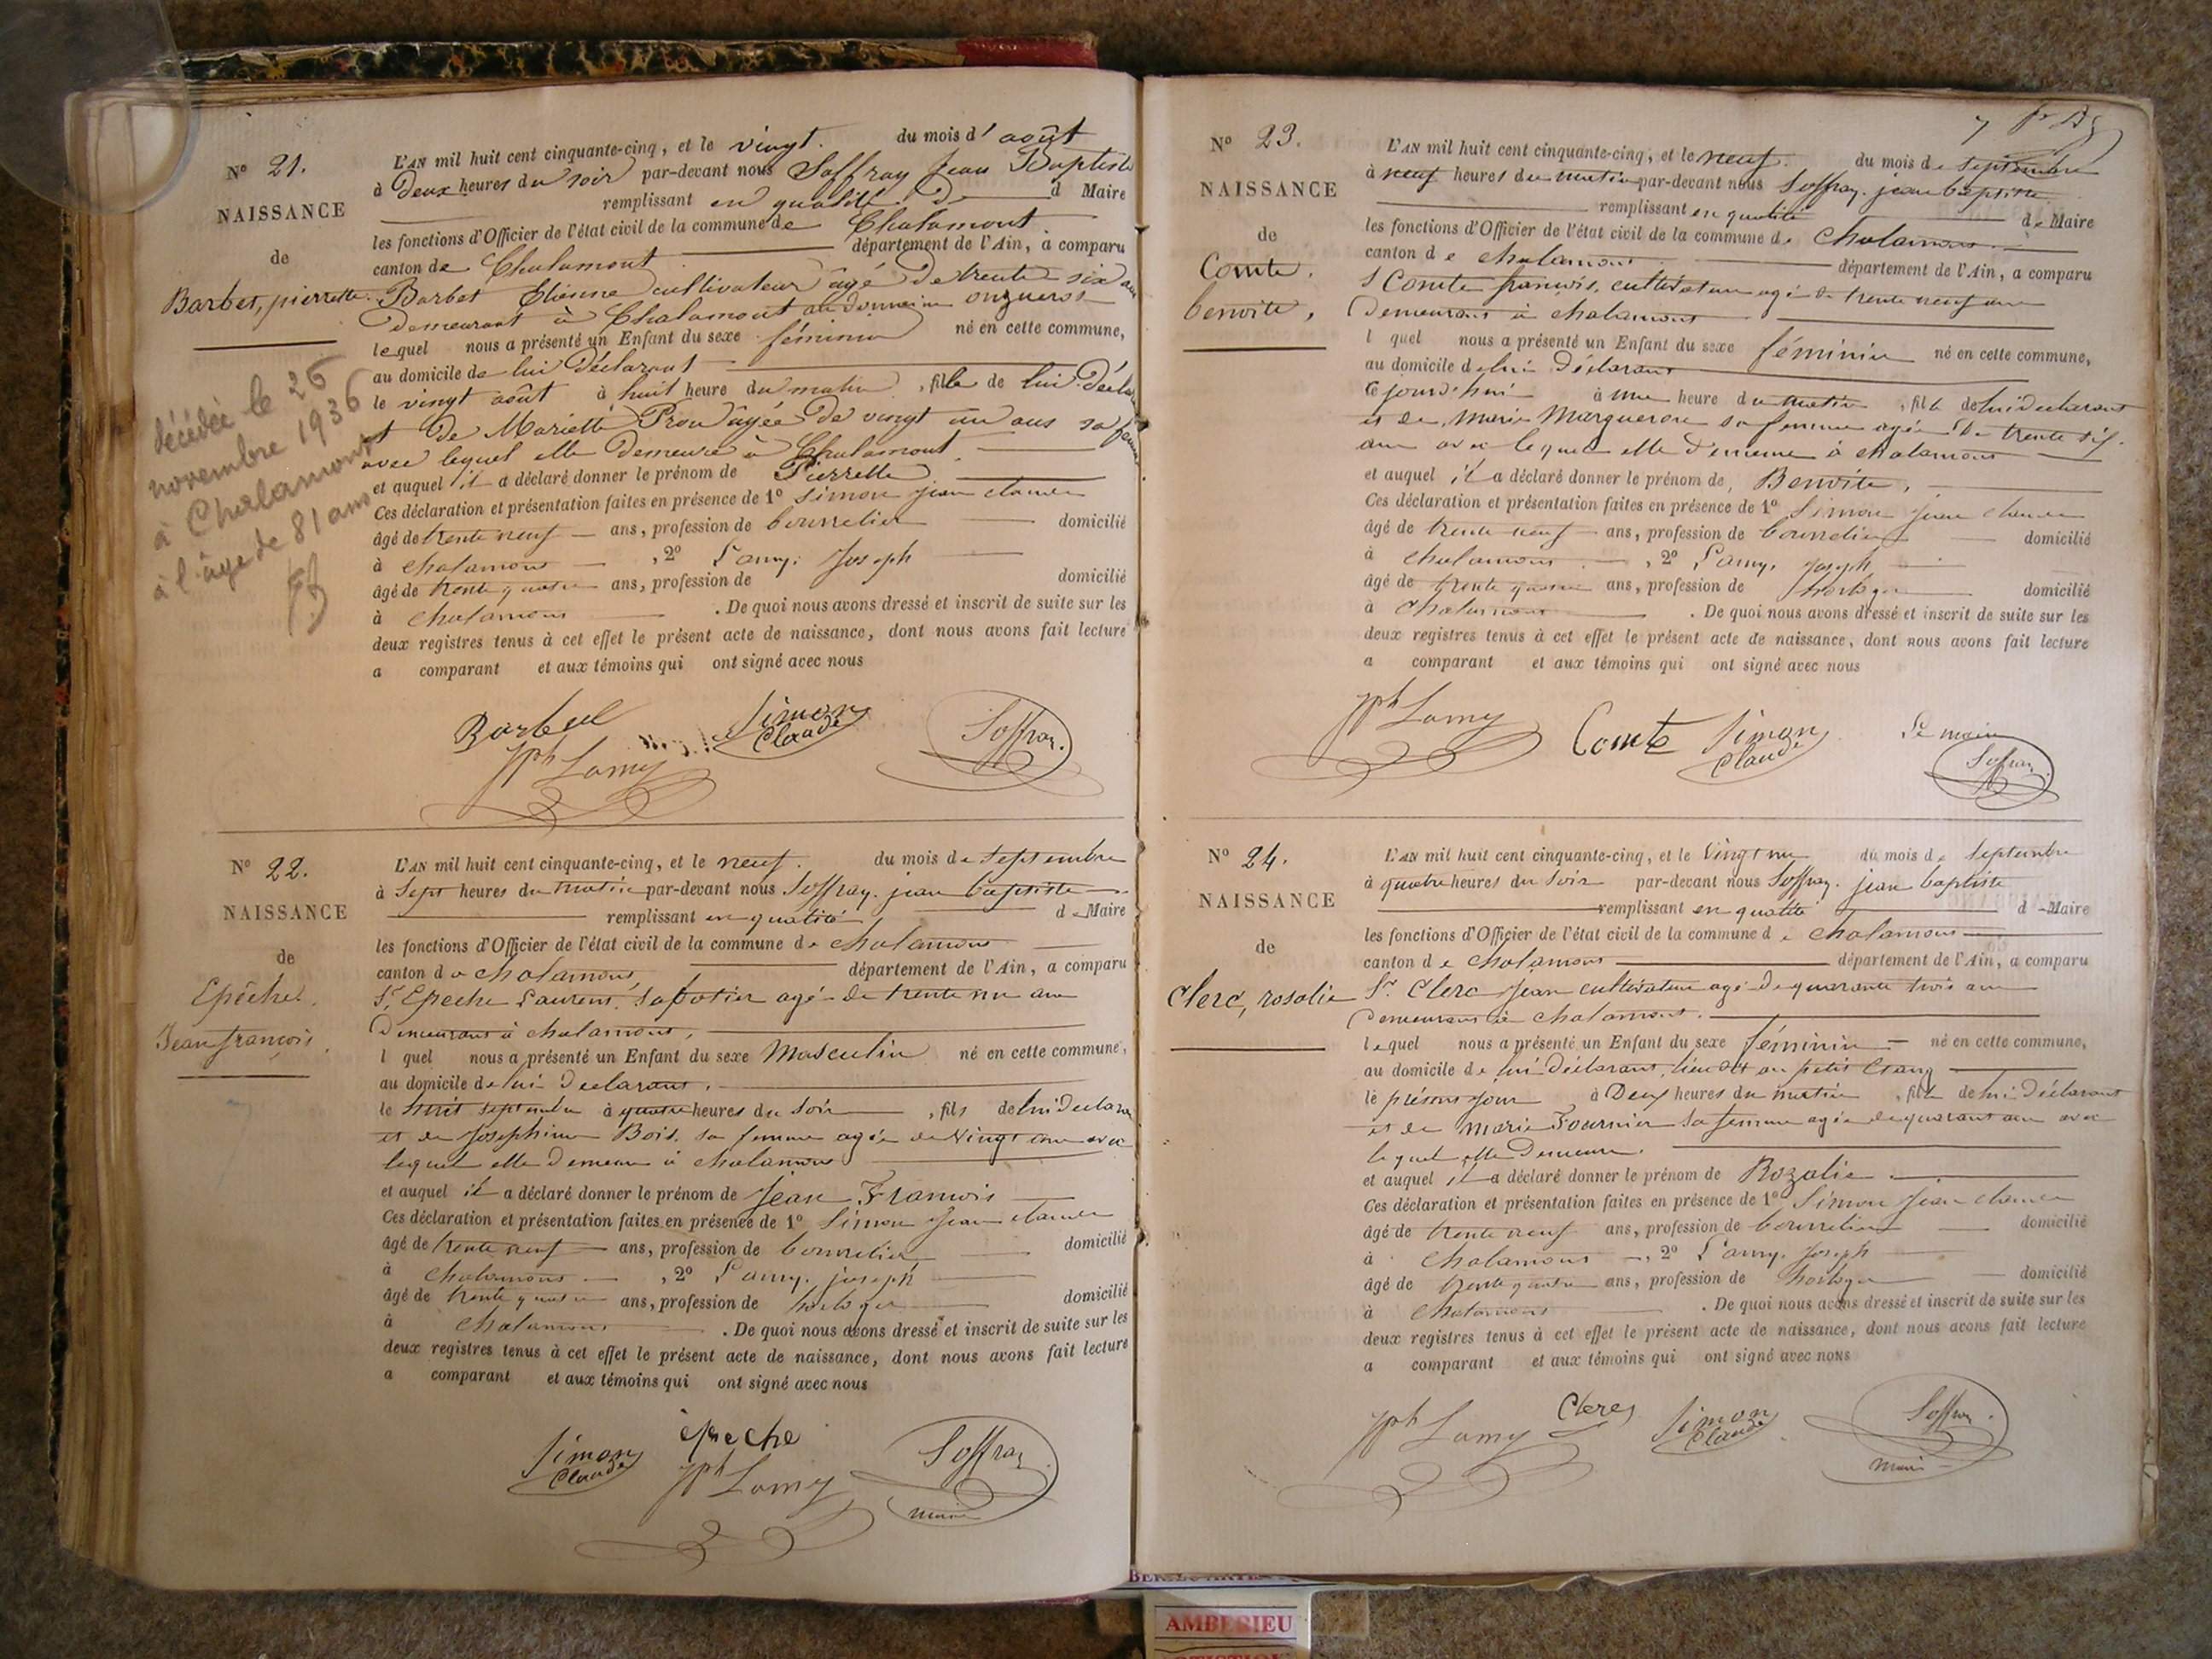 Nº 21.
NAISSANCE
de
Barbet, pierrette.
décédée le 26
novembre 1936
à Chalamont
à l'âge de 81 ans
L'AN mil huit cent cinquante-cinq, et le vingt. du mois d' août
à Deux heures du soir par-devant nous Soffray Jean Baptiste
remplissant en qualité De d Maire
les fonctions d'Officier de l'état civil de la commune de Chalamont
canton de Chalamont département de l'Ain, a comparu
Barbet Etienne cultivateur âgé De trente six ans
Demeurant à Chalamont au domaine
lequel nous a présenté un Enfant du sexe féminin né en cette commune,
au domicile de lui Déclarant
le vingt août à huit heure du matin, fille de lui Déclar
et De Mariette Prou âgée De vingt un ans sa femme
avec lequel elle Demeure à Chalamont.
et auquel il a déclaré donner le prénom de Pierrette
Ces déclaration et présentation faites en présence de 1º Simon jean claude
âgé de trente neuf ans, profession de bourrelier domicilié
à chalamont, 2º Lamy. Joseph
âgé de trente quatre ans, profession de domicilié
à chalamont. De quoi nous avons dressé et inscrit de suite sur les
deux registres tenus à cet effet le présent acte de naissance, dont nous avons fait lecture
a comparant et aux témoins qui ont signé avec nous
Barbet
Simon
Claude
Jph Lamy
Soffray.
Nº 22.
NAISSANCE
de
Epêche.
Jean françois.
L'AN mil huit cent cinquante-cinq, et le neuf. du mois de septembre
à Sept heures du matin par-devant nous Soffray. jean baptiste
remplissant en qualité de Maire
les fonctions d'Officier de l'état civil de la commune de chalamont
canton de chalamont, département de l'Ain, a comparu
Sr Epeche Laurent, sabotier agé de trente un ans
Demeurant à chalamont,
l quel nous a présenté un Enfant du sexe Masculin né en cette commune,
au domicile de lui Declarant.
le huit septembre à quatre heures du Soir, fils de lui Declarant
et de Josephine Bois. sa femme agée de Vingt ans avec
lequel elle Demeure à chalamont
et auquel il a déclaré donner le prénom de Jean Francois
Ces déclaration et présentation faites en présence de 1º Simon Jean claude
âgé de trente neuf ans, profession de bourrelier domicilié
à chalamont, 2º Lamy. joseph
âgé de trente quatre ans, profession de horloger domicilié
à chalamont. De quoi nous avons dressé et inscrit de suite sur les
deux registres tenus à cet effet le présent acte de naissance, dont nous avons fait lecture
a comparant et aux témoins qui ont signé avec nous
Simon
Claude
épeche
Jph Lamy
Soffray
maire
Nº 23.
NAISSANCE
de
Comte.
benoite,
7
L'AN mil huit cent cinquante-cinq, et le neuf. du mois de septembre
à neuf heures du matin par-devant nous Soffray. jean baptiste
remplissant en qualité de Maire
les fonctions d'Officier de l'état civil de la commune de Chalamont
canton de chalamont département de l'Ain, a comparu
S Comte francois, cultivateur agé de trente neuf ans
Demeurant à chalamont
l quel nous a présenté un Enfant du sexe féminin né en cette commune,
au domicile de lui Déclarant
Ce jourd'hui à une heure du matin, fille de lui declarant
et de Marie Margueron sa femme agée de trente six
ans avec lequel elle Demeure à chalamont
et auquel il a déclaré donner le prénom de, Benoite,
Ces déclaration et présentation faites en présence de 1º Simon Jean claude
âgé de trente neuf ans, profession de bourrelier domicilié
à chalamont, 2º Lamy. Joseph
âgé de trente quatre ans, profession de horloger domicilié
à chalamont. De quoi nous avons dressé et inscrit de suite sur les
deux registres tenus à cet effet le présent acte de naissance, dont nous avons fait lecture
a comparant et aux témoins qui ont signé avec nous
Jph Lamy
Comte
Simon
Claude
Le maire
Soffray
Nº 24.
NAISSANCE
de
Clerc, rosalie
L'AN mil huit cent cinquante-cinq, et le Vingt un du mois de Septembre
à quatre heures du Soir par-devant nous Soffray. jean baptiste
remplissant en qualité d Maire
les fonctions d'Officier de l'état civil de la commune de chalamont
canton de chalamont département de l'Ain, a comparu
Sr. Clerc Jean cultivateur agé de quarante trois ans
Demeurant à chalamont.
lequel nous a présenté un Enfant du sexe féminin né en cette commune,
au domicile de lui Déclarant, lieu dit au petit Etang
le présent jour à Deux heures du matin, fille de lui Déclarant
et de Marie Fournier sa femme agée de quarant ans avec
lequel elle Demeure.
et auquel il a déclaré donner le prénom de Rozalie
Ces déclaration et présentation faites en présence de 1º Simon Jean claude
âgé de trente neuf ans, profession de bourrelier domicilié
à chalamont, 2º Lamy. Joseph
âgé de trente quatre ans, profession de horloger domicilié
à chalamont. De quoi nous avons dressé et inscrit de suite sur les
deux registres tenus à cet effet le présent acte de naissance, dont nous avons fait lecture
a comparant et aux témoins qui ont signé avec nous
Jph Lamy
Clerc
Simon
Claude
Soffray.
maire
AMBERIEU